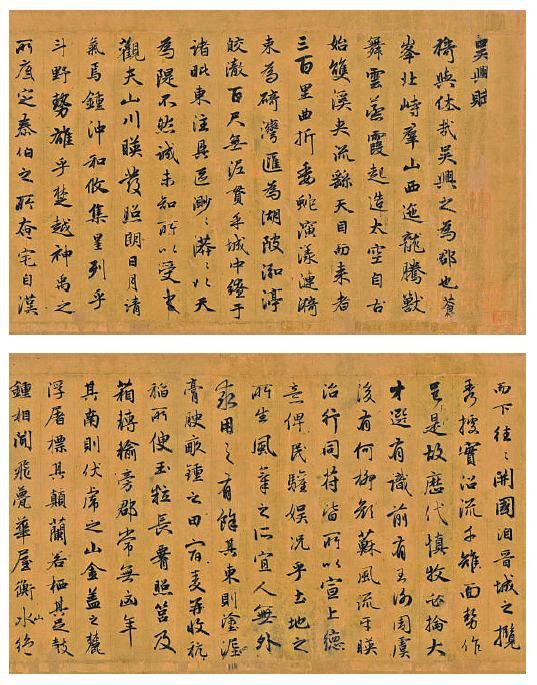 吳興賦
猗與休哉吳興之為郡也蒼
峯北峙羣山西迤龍騰獸
舞雲蒸霞起造太空自古
始雙溪夾流繇天目而來者
三百里曲折委蛇演漾漣漪
束為碕灣匯為湖陂泓渟
皎澈百尺無泥貫乎城中繚于
諸毗東注具區渺〻漭〻以天
為隄不然誠未知所以受之
觀夫山川暎發照朗日月清
氣焉鍾沖和攸集星列乎
斗野勢雄乎楚越神禹之
所底定泰伯之所奄宅自漢
而下往〻開國洎晉城之攬
秀據實沿流千雉面勢作
邑是故歷代慎牧必掄大
才選有識前有王謝周虞
後有何柳顏蘇風流互暎
治行同符皆所以宣上德
意俾民驩娛況乎土地之
所生風氣之所宜人無外
求用之有餘其東則塗泥
膏腴畝鍾之田宿麥再收秔
稻所便玉粒長賸照筥及
箱轉輸旁郡常無凶年
其南則伏虎之山金蓋之麓
浮屠標其顛蘭若栖其足鼓
鍾相聞飛甍華屋衡水繞